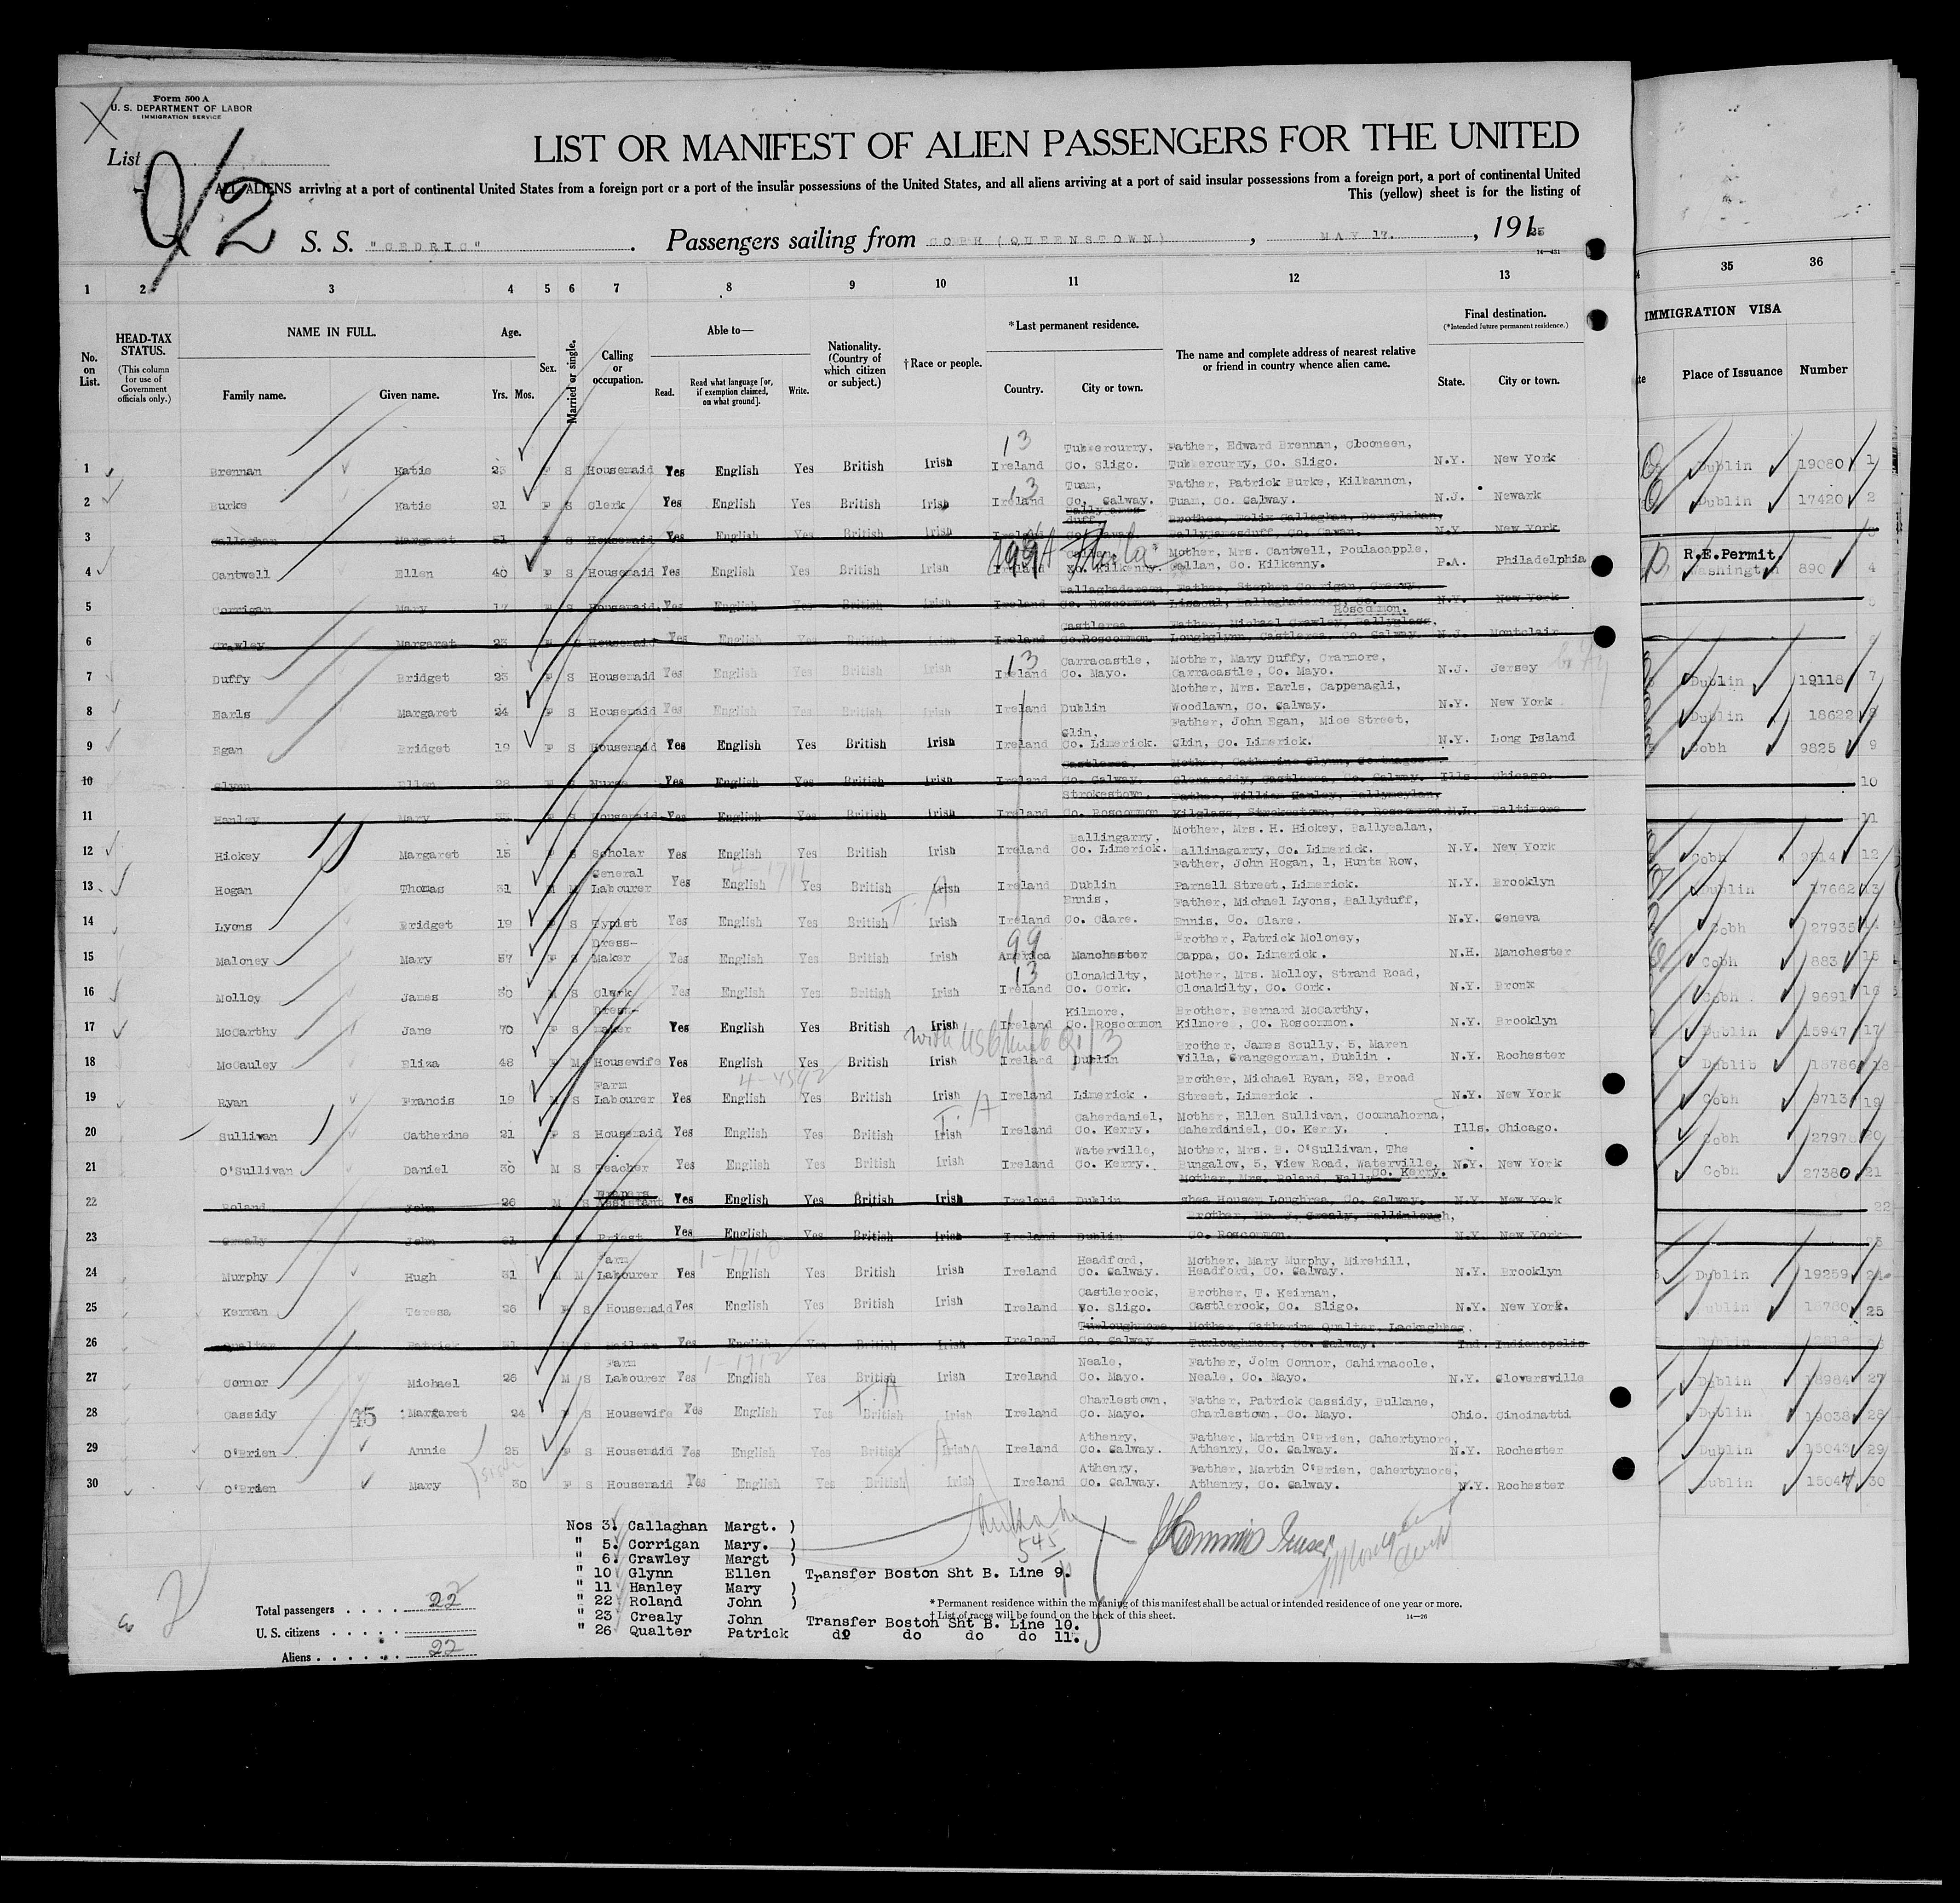 Form 500 A
U. S. DEPARTMENT OF LABOR
IMMIGRATION SERVICE
List
2
LIST OR MANIFEST OF ALIEN PASSENGERS FOR THE UNITED
ALL ALIENS arriving at a port of continental United States from a foreign port or a port of the insular possessions of the United States, and all aliens arriving at a port of said insular possessions from a foreign port, a port of continental United
This (yellow) sheet is for the listing of
S. S. "CEDRIC" . Passengers sailing from COBH (QUEENSTOWN) , MAY 17. , 1925
14—431
1 2 3 4 5 6 7 8 9 10 11 12 13 35 36
No. on List.
HEAD-TAX STATUS.
(This column for use of Government officials only.)
NAME IN FULL.
Family name. Given name.
Age.
Yrs. Mos.
Sex.
Married or single.
Calling or occupation.
Able to—
Read. Read what language [or, if exemption claimed, on what ground]. Write.
Nationality. (Country of which citizen or subject.)
†Race or people.
*Last permanent residence.
Country. City or town.
The name and complete address of nearest relative or friend in country whence alien came.
Final destination.
(*Intended future permanent residence.)
State. City or town.
IMMIGRATION VISA
Place of Issuance Number
1 Brennan Katie 23 F S Housemaid Yes English Yes British Irish 13 Ireland Tubbercurry, Co. Sligo. Father, Edward Brennan, Clooneen, Tubbercurry, Co. Sligo. N.Y. New York Dublin 19080 1
2 Burke Katie 21 F S Clerk Yes English Yes British Irish 13 Ireland Tuam, Co. Galway. Father, Patrick Burke, Kilbannon, Tuam, Co. Galway. N.J. Newark Dublin 17420 2
3 Callaghan Margaret 21 F S Housemaid Yes English Yes British Irish Ireland Brother, Felix Callaghan, Co. Cavan. N.Y. New York 3
4 Cantwell Ellen 40 F S Housemaid Yes English Yes British Irish 99 Ireland Callan, Co. Kilkenny Mother, Mrs. Cantwell, Poulacapple, Callan, Co. Kilkenny. P.A. Philadelphia R.E.Permit. Washington 890 4
5 Corrigan Mary 17 F S Housemaid Yes English Yes British Irish Ireland Ballaghadereen, Co. Roscommon Father, Stephen Corrigan, Lissoul, Ballaghadereen, Co. Roscommon. N.Y. New York 5
6 Crawley Margaret 23 F S Housemaid Yes English Yes British Irish Ireland Castlerea, Co. Roscommon Father, Michael Crawley, Ballyglass, Loughglynn, Castlerea, Co. Galway. N.J. Montclair 6
7 Duffy Bridget 23 F S Housemaid Yes English Yes British Irish 13 Ireland Carracastle, Co. Mayo. Mother, Mary Duffy, Cranmore, Carracastle, Co. Mayo. N.J. Jersey Dublin 19118 7
8 Earls Margaret 24 F S Housemaid Yes English Yes British Irish Ireland Dublin Mother, Mrs. Earls, Cappenagli, Woodlawn, Co. Galway. N.Y. New York Dublin 18622 8
9 Egan Bridget 19 F S Housemaid Yes English Yes British Irish Ireland Glin, Co. Limerick. Father, John Egan, Mice Street, Glin, Co. Limerick. N.Y. Long Island Cobh 9825 9
10 Glynn Ellen 28 F S Nurse Yes English Yes British Irish Ireland Castlerea, Co. Galway. Mother, Catherine Glynn, Glenamaddy, Castlerea, Co. Galway. Ills. Chicago. 10
11 Hanley Mary F S Housemaid Yes English Yes British Irish Ireland Strokestown, Co. Roscommon Father, William Hanley, Kilglass, Strokestown, Co. Roscommon Baltimore 11
12 Hickey Margaret 15 F S Scholar Yes English Yes British Irish Ireland Ballingarry, Co. Limerick. Mother, Mrs. H. Hickey, Ballysalan, Ballinagarry, Co. Limerick. N.Y. New York Cobh 12
13 Hogan Thomas 31 M M General Labourer Yes English Yes British Irish Ireland Dublin Father, John Hogan, 1, Hunts Row, Parnell Street, Limerick. N.Y. Brooklyn Dublin 17662 13
14 Lyons Bridget 19 F S Typist Yes English Yes British Irish Ireland Ennis, Co. Clare. Father, Michael Lyons, Ballyduff, Ennis, Co. Clare. N.Y. Geneva Cobh 27935 14
15 Maloney Mary 57 F S Dress-Maker Yes English Yes British Irish 99 America Manchester Brother, Patrick Moloney, Cappa, Co. Limerick. N.H. Manchester Cobh 883 15
16 Molloy James 30 M S Clerk Yes English Yes British Irish 13 Ireland Clonakilty, Co. Cork. Mother, Mrs. Molloy, Strand Road, Clonakilty, Co. Cork. N.Y. Bronx Cobh 9691 16
17 McCarthy Jane 70 F S Dress-maker Yes English Yes British Irish Ireland Kilmore, Co. Roscommon Brother, Bernard McCarthy, Kilmore, Co. Roscommon. N.Y. Brooklyn Dublin 15947 17
18 McCauley Eliza 48 F M Housewife Yes English Yes British Irish Ireland Dublin Brother, James Scully, 5, Maren Villa, Grangegorman, Dublin . N.Y. Rochester Dublib 18786 18
19 Ryan Francis 19 M S Farm Labourer Yes English Yes British Irish Ireland Limerick . Brother, Michael Ryan, 32, Broad Street, Limerick . N.Y. New York Cobh 9713 19
20 Sullivan Catherine 21 F S Housemaid Yes English Yes British Irish Ireland Caherdaniel, Co. Kerry. Mother, Ellen Sullivan, Coomnahorna, Caherdaniel, Co. Kerry. Ills. Chicago. Cobh 20
21 O'Sullivan Daniel 30 M S Teacher Yes English Yes British Irish Ireland Waterville, Co. Kerry. Mother, Mrs. B. O'Sullivan, The Bungalow, 5, View Road, Waterville, Co. Kerry. N.Y. New York Cobh 27380 21
22 Roland John 26 M S Drapers Assistant Yes English Yes British Irish Ireland Dublin Mother, Mrs. Roland, Loughrea, Co. Galway. N.Y. New York 22
23 Crealy John 31 Priest Yes English Yes British Irish Ireland Dublin Brother, Mr. J. Crealy, Ballinlough, Co. Roscommon. N.Y. New York 23
24 Murphy Hugh 31 M M Farm Labourer Yes English Yes British Irish Ireland Headford, Co. Galway. Mother, Mary Murphy, Mirehill, Headford, Co. Galway. N.Y. Brooklyn Dublin 19259 24
25 Kernan Teresa 26 F S Housemaid Yes English Yes British Irish Ireland Castlerock, Co. Sligo. Brother, T. Keirnan, Castlerock, Co. Sligo. N.Y. New York. Dublin 18780 25
26 Qualter Patrick 21 M S Yes English Yes British Irish Ireland Turloughmore, Co. Galway Mother, Catherine Qualter, Turloughmore, Co. Galway. Ind. Indianapolis Dublin
27 Connor Michael 26 M S Farm Labourer Yes English Yes British Irish Ireland Neale, Co. Mayo. Father, John Connor, Cahirnacole, Neale, Co. Mayo. N.Y. Gloversville Dublin 18984 27
28 Cassidy 45 Margaret 24 F S Housewife Yes English Yes British Irish Ireland Charlestown, Co. Mayo. Father, Patrick Cassidy, Bulkane, Charlestown, Co. Mayo. Ohio. Cincinatti Dublin 19038 28
29 O'Brien Annie 25 F S Housemaid Yes English Yes British Irish Ireland Athenry, Co. Galway. Father, Martin O'Brien, Cahertymore, Athenry, Co. Galway. N.Y. Rochester Dublin 15043 29
30 O'Brien Mary 30 F S Housemaid Yes English Yes British Irish Ireland Athenry, Co. Galway. Father, Martin O'Brien, Cahertymore, Athenry, Co. Galway. N.Y. Rochester Dublin 15044 30
Nos 3. Callaghan Margt. )
" 5. Corrigan Mary. )
" 6. Crawley Margt )
" 10 Glynn Ellen Transfer Boston Sht B. Line 9.
" 11 Hanley Mary )
" 22 Roland John )
" 23 Crealy John Transfer Boston Sht B. Line 10.
" 26 Qualter Patrick do do do do 11.
545
Total passengers . . . . 22
U. S. citizens . . . . .
Aliens . . . . . . 22
* Permanent residence within the meaning of this manifest shall be actual or intended residence of one year or more.
† List of races will be found on the back of this sheet.
14—26